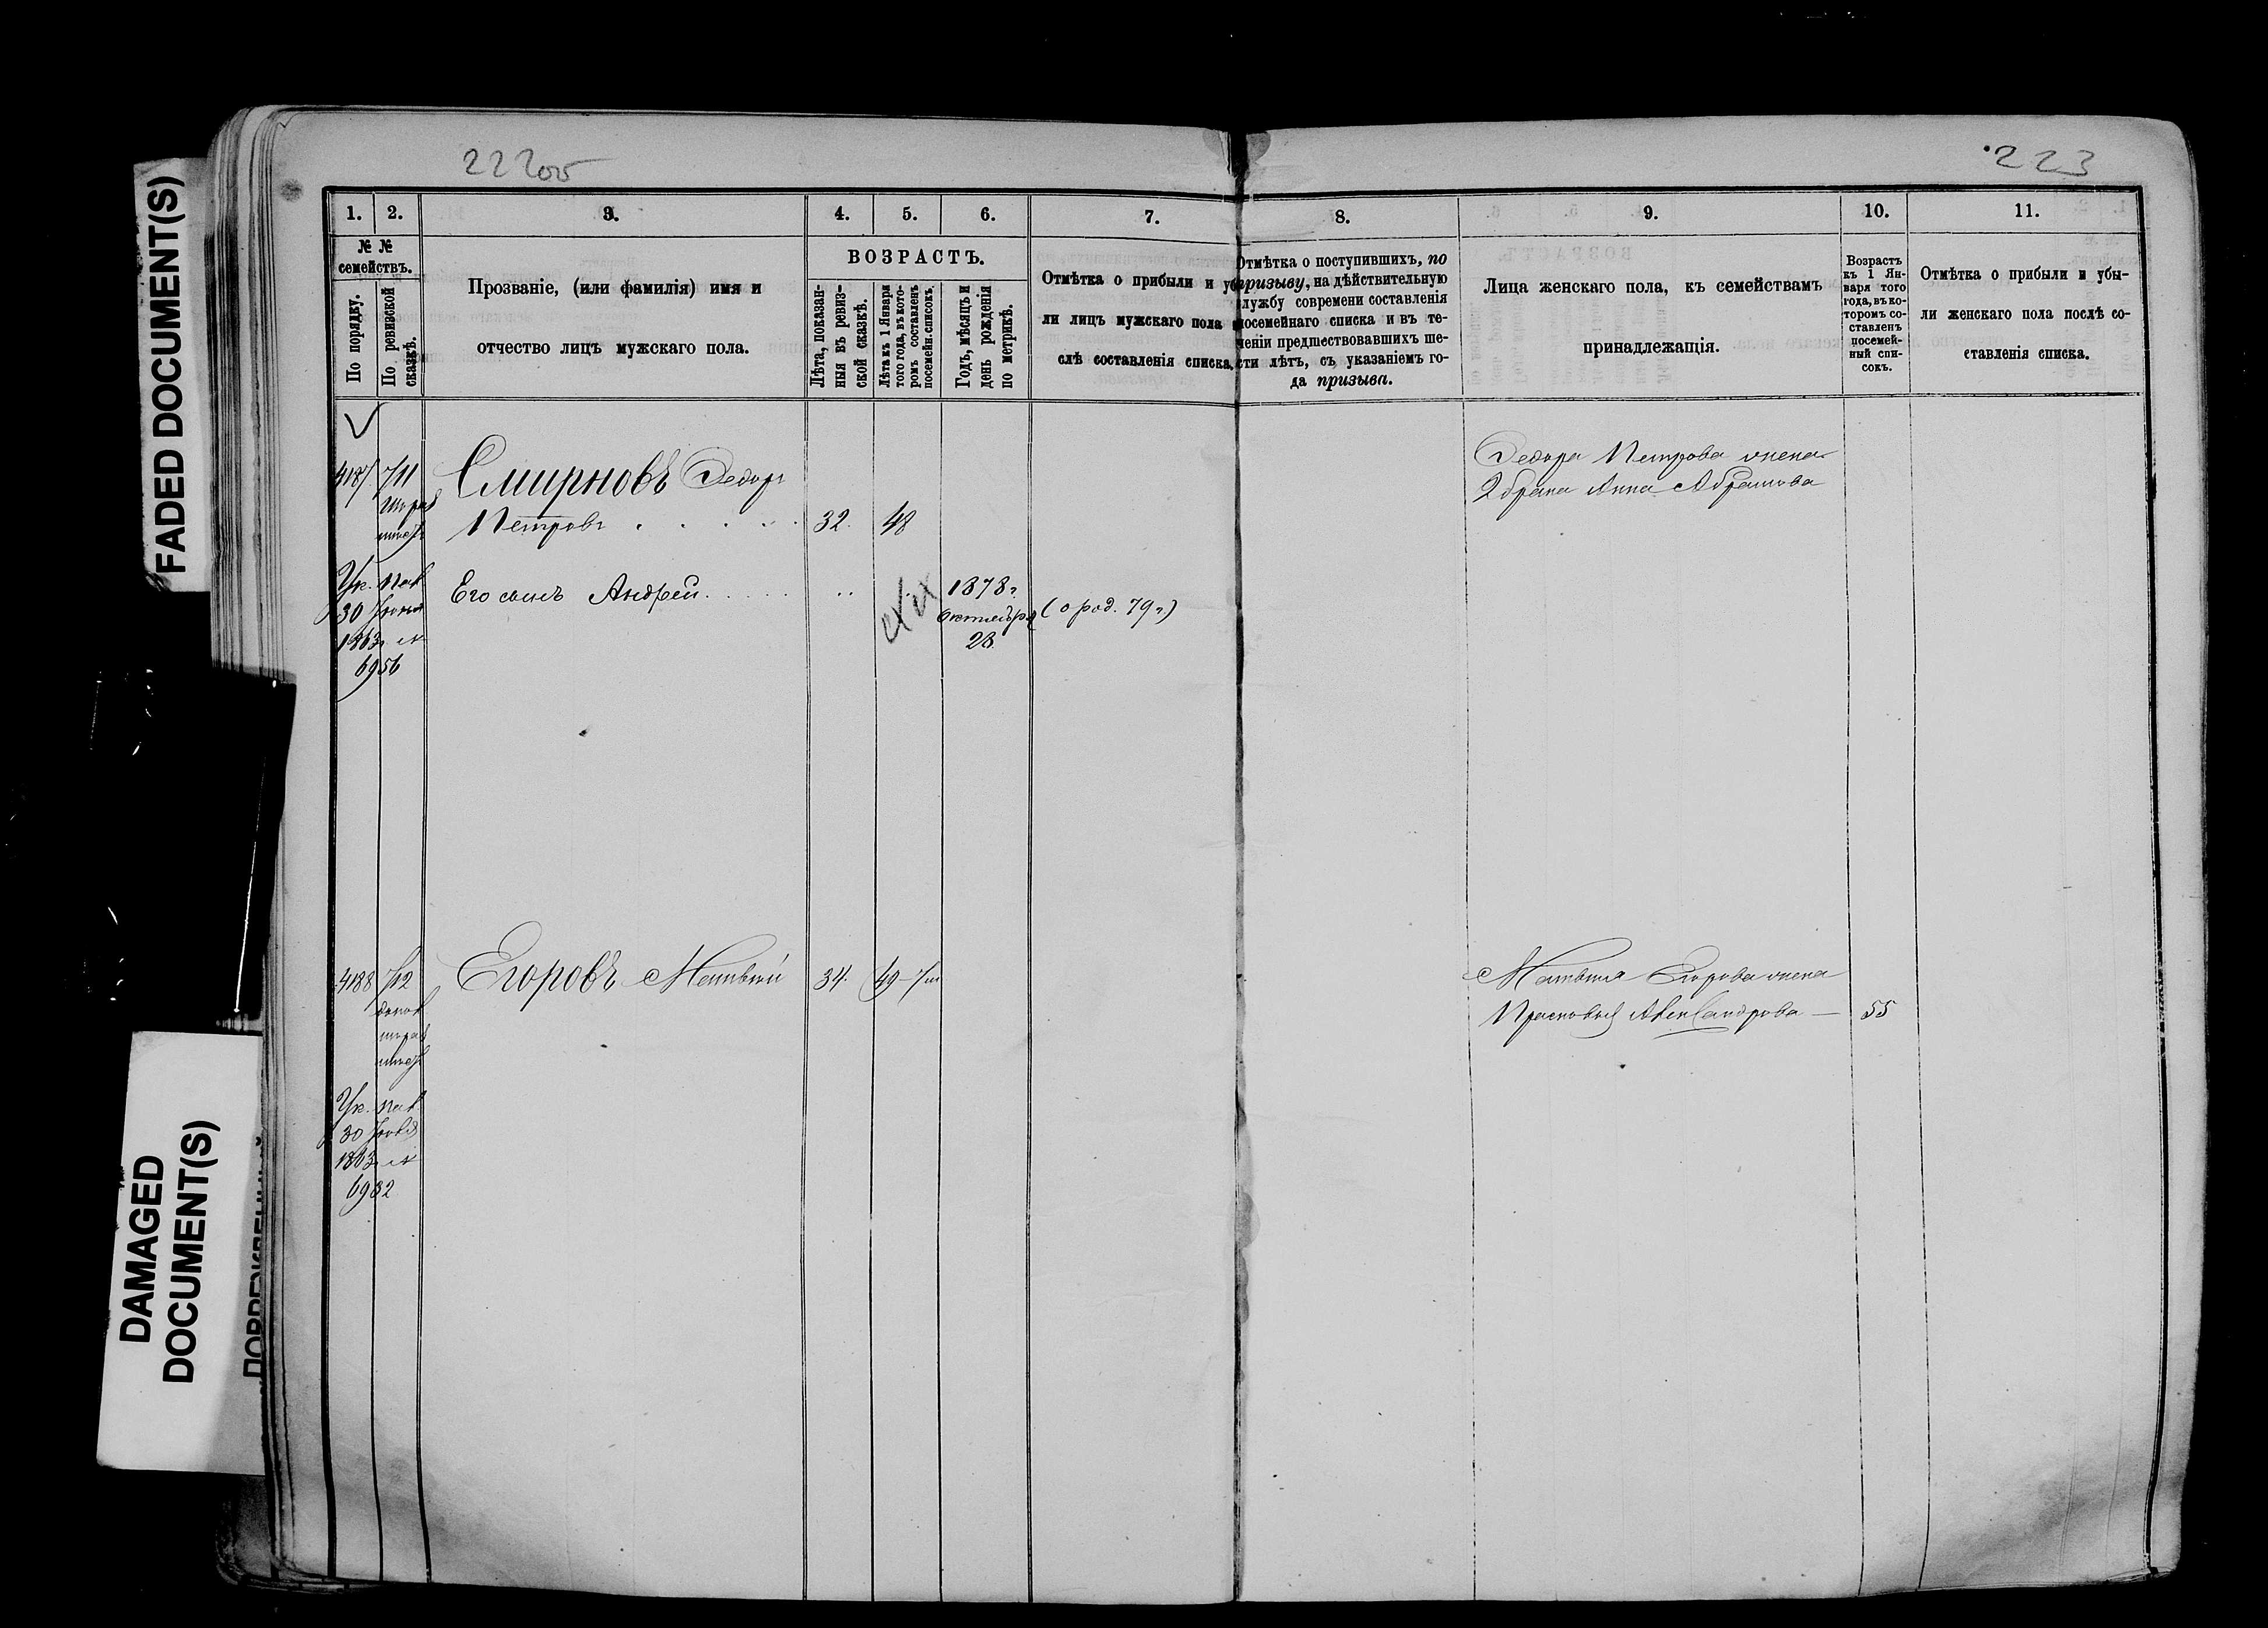 FADED DOCUMENT(S)
DAMAGED
DOCUMENT(S)
222об
223
1.
2.
3.
4.
5.
6.
7.
8.
9.
10.
11.
№ №
семействъ.
По порядку.
По ревизской
сказкѣ.
Прозваніе, (или фамилія) имя и
отчество лицъ мужскаго пола.
ВОЗРАСТЪ.
Лѣта, показан-
ныя въ ревиз-
ской сказкѣ.
Лѣта къ 1 Января
того года, въ кото-
ромъ составленъ
посемейн. списокъ.
Годъ, мѣсяцъ и
день рожденія
по метрикѣ.
Отмѣтка о прибыли и убы-
ли лицъ мужскаго пола
слѣ составленія списка.
Отмѣтка о поступившихъ, по
призыву, на дѣйствительную
службу современи составленія
посемейнаго списка и въ те-
ченіи предшествовавшихъ ше-
сти лѣтъ, съ указаніемъ го-
да призыва.
Лица женскаго пола, къ семействамъ
принадлежащія.
Возрастъ
къ 1 Ян-
варя того
года, въ ко-
торомъ со-
ставленъ
посемей-
ный спи-
сокъ.
Отмѣтка о прибыли и убы-
ли женскаго пола послѣ со-
ставленія списка.
4187
711
Смирновъ Федоръ
Петровъ
32.
48
Ук. пал.
30 Іюня
1863г. №
6956
Его сынъ Андрей
1878г.
Октября
28
(о род. 79г.)
Федора Петрова жена
2 брака Анна Абрамова
4188
712
Егоровъ Матвѣй
34.
49
Матвѣя Егорова жена
Прасковья Александрова —
55
Ук. пал.
30
1863 №
6982